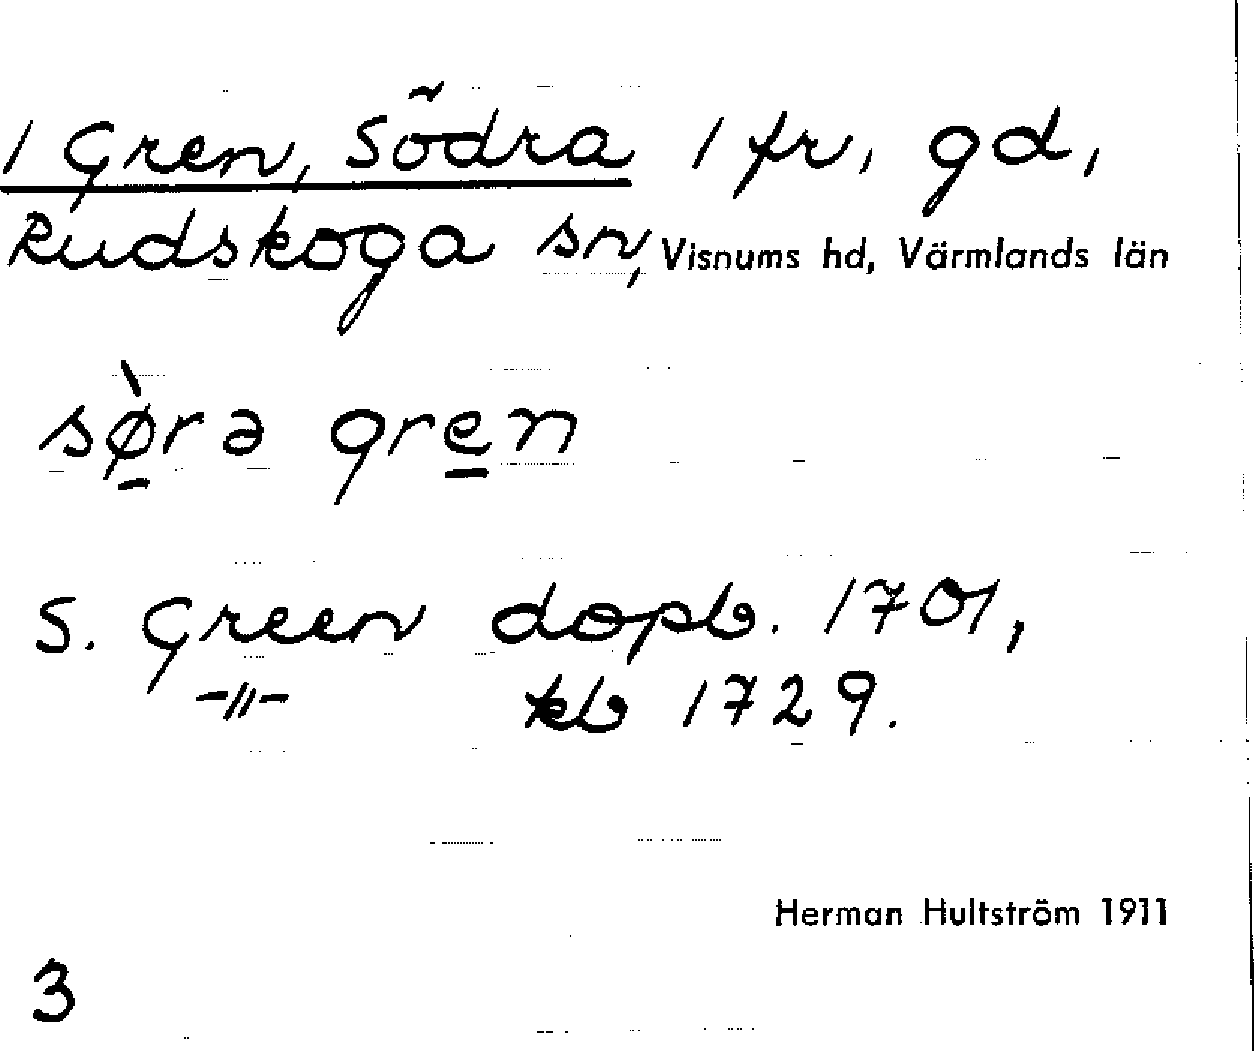 1 Gren, Södra 1 fr, gd,
Rudskoga sn, Visnums hd, Värmlands län
sø̠̀rə gre̠n
S. Green dopb. 1701,
-"- kb 1729.
Herman Hultström 1911
3